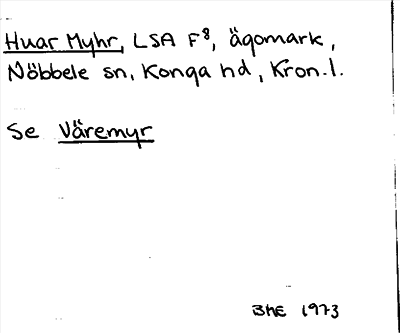 Huar Myhr, LSA F8, ägomark,
Nöbbele sn, Konga hd, Kron. l.
Se Väremyr
BhE 1973